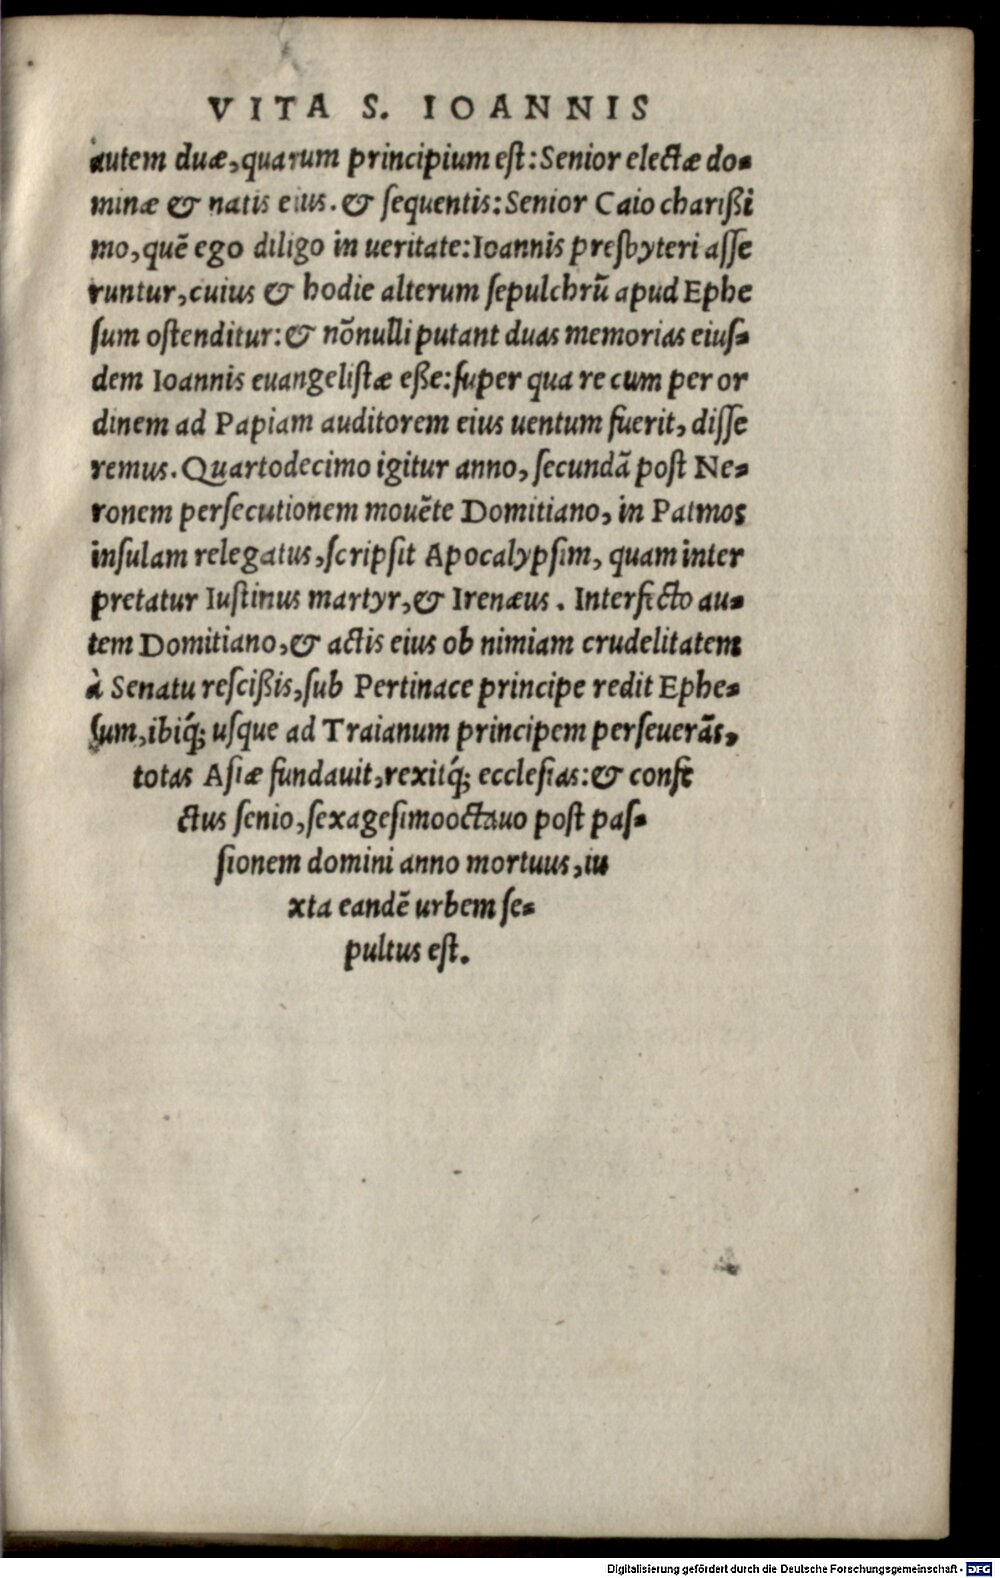 VITA S. IOANNIS
autem duæ, quarum principium est: Senior electæ do-
minæ & natis eius. & sequentis: Senior Caio charißi
mo, quē ego diligo in ueritate: Ioannis presbyteri asse
runtur, cuius & hodie alterum sepulchrū apud Ephe
sum ostenditur: & nōnulli putant duas memorias eius-
dem Ioannis euangelistæ eße: super qua re cum per or
dinem ad Papiam auditorem eius uentum fuerit, disse
remus. Quartodecimo igitur anno, secundā post Ne-
ronem persecutionem mouēte Domitiano, in Patmos
insulam relegatus, scripsit Apocalypsim, quam inter
pretatur Iustinus martyr, & Irenæus. Interfecto au-
tem Domitiano, & actis eius ob nimiam crudelitatem
à Senatu rescißis, sub Pertinace principe redit Ephe-
sum, ibiq́; usque ad Traianum principem perseuerās,
totas Asiæ fundauit, rexitq́; ecclesias: & confe
ctus senio, sexagesimooctauo post pas-
sionem domini anno mortuus, iu
xta eandē urbem se-
pultus est.
Digitalisierung gefördert durch die Deutsche Forschungsgemeinschaft - DFG